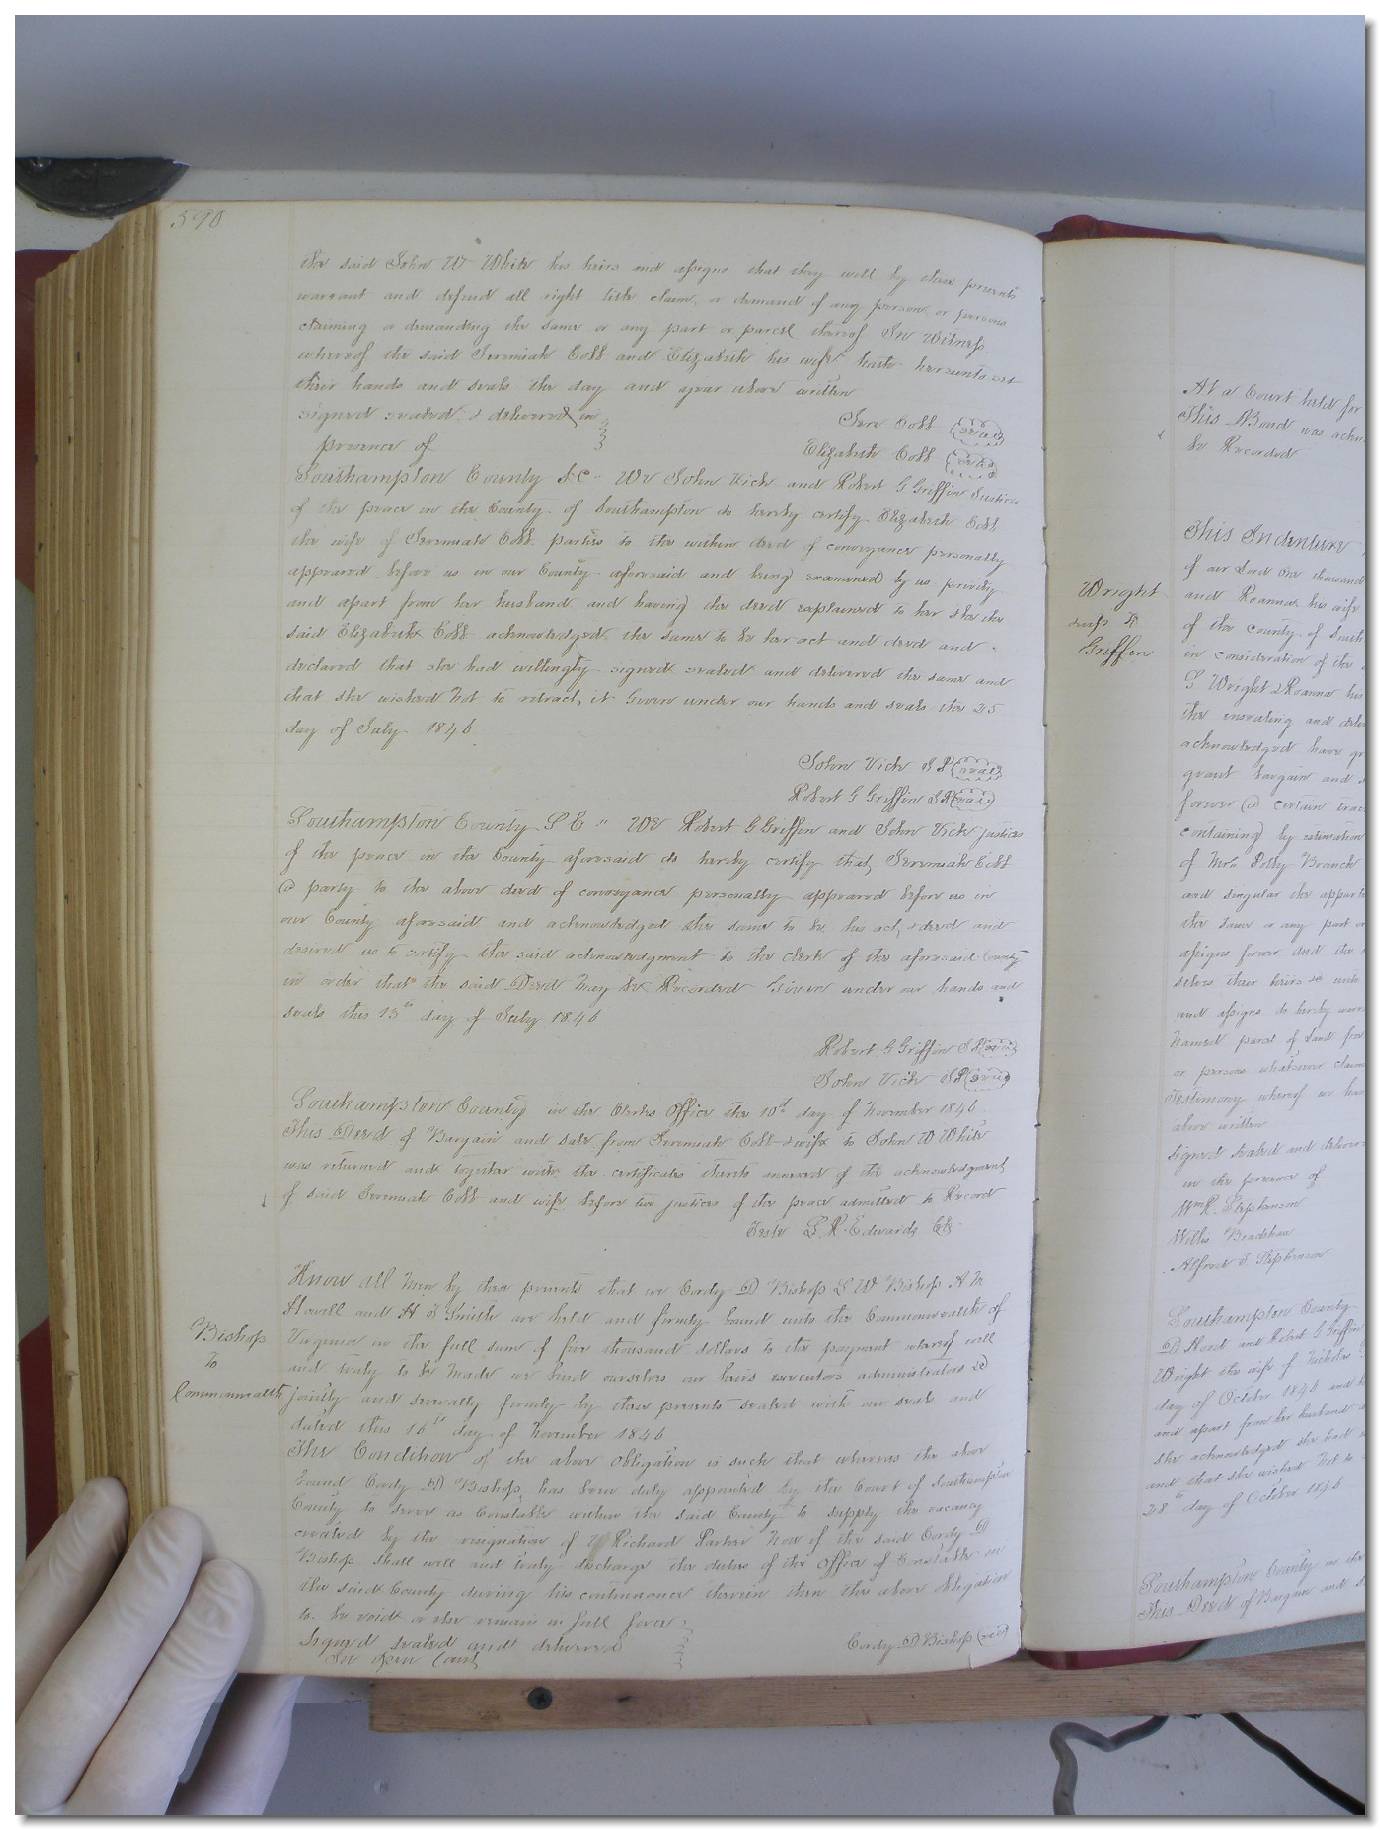 390
the said John W White his heirs and assigns that they will by these presents
warrant and defend all right title claim or demand of any person or persons
claiming or demanding the same or any part or parcel thereof In Witness
whereof the said Jeremiah Cobb and Elizabeth his wife hath hereunto set
their hands and seals the day and year above written
signed sealed & delivered in
presence of
Jere Cobb (seal)
Elizabeth Cobb (seal)
Southampton County Sc " We John Vick and Robert G Griffin Justices
of the peace in the County of Southampton do hereby certify Elizabeth Cobb
the wife of Jeremiah Cobb parties to the within deed of conveyance personally
appeared before us in our County aforesaid and being examined by us privily
and apart from her husband and having the deed explained to her she the
said Elizabeth Cobb acknowledged the same to be her act and deed and
declared that she had willingly signed sealed and delivered the same and
that she wished not to retract it Given under our hands and seals the 25
day of July 1846
John Vick JP (seal)
Robert G Griffin JP (seal)
Southampton County SC " We Robert G Griffin and John Vick justices
of the peace in the County aforesaid do hereby certify that Jeremiah Cobb
a party to the above deed of conveyance personally appeared before us in
our County aforesaid and acknowledged the same to be his act & deed and
desired us to certify the said acknowledgment to the clerk of the aforesaid County
in order that the said Deed May be Recorded Given under our hands and
seals this 13th day of July 1846
Robert G Griffin JP (seal)
John Vick JP (seal)
Southampton County in the Clerks Office the 10th day of November 1846
This Deed of Bargain and sale from Jeremiah Cobb & wife to John W White
was returned and together with the certificates thereto annexed of the acknowledgment
of said Jeremiah Cobb and wife before two justices of the peace admitted to Record
Teste L R Edwards Clk
Bishop
to
Commonwealth
Know all Men by these presents that we Cordy D Bishop L W Bishop A M
Howell and H J Smith are held and firmly bound unto the Commonwealth of
Virginia in the full sum of five thousand dollars to the payment whereof well
and truly to be Made we bind ourselves our heirs executors administrators &
jointly and severally firmly by these presents sealed with our seals and
dated this 16th day of November 1846
The Condition of the above Obligation is such that whereas the above
bound Cordy D Bishop has been duly appointed by the Court of Southampton
County to serve as Constable within the said County to supply the vacancy
created by the resignation of Richard Parker Now if the said Cordy D
Bishop shall well and truly discharge the duties of the Office of Constable in
the said County during his continuance therein then the above Obligation
to be void or else remain in full force
Signed sealed and delivered
In open Court
Cordy D Bishop (seal)
At a Court held for
This Bond was
be Recorded
Wright
& wife to
Griffin
This Indenture
of our Lord One thousand
and Roanna his wife
of the county of South
in consideration of the
S Wright & Roanna his
the ensealing and deli
acknowledged have gr
grant bargain and
forever a certain trac
containing by estimation
of Mrs Polly Branch
and singular the appurte
the same or any part or
assigns forever And the
selves their heirs & with
and assigns do hereby warr
named parcel of Land
or persons whatsoever claim
Testimony whereof we have
above written
Signed sealed and deliver
in the presence of
Wm R. Stephenson
Willis Bradshaw
Alfred J Stephenson
Southampton County
D Hood and Robert G Griffin
Wright the wife of Nicholas
day of October 1846 and
and apart from her husband
she acknowledged she had
and that she wished Not to
28th day of October 1846
Southampton County in the
This Deed of Bargain and